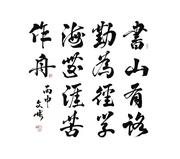 書山有路
勤為徑學
海無涯苦
作舟
丙申
文